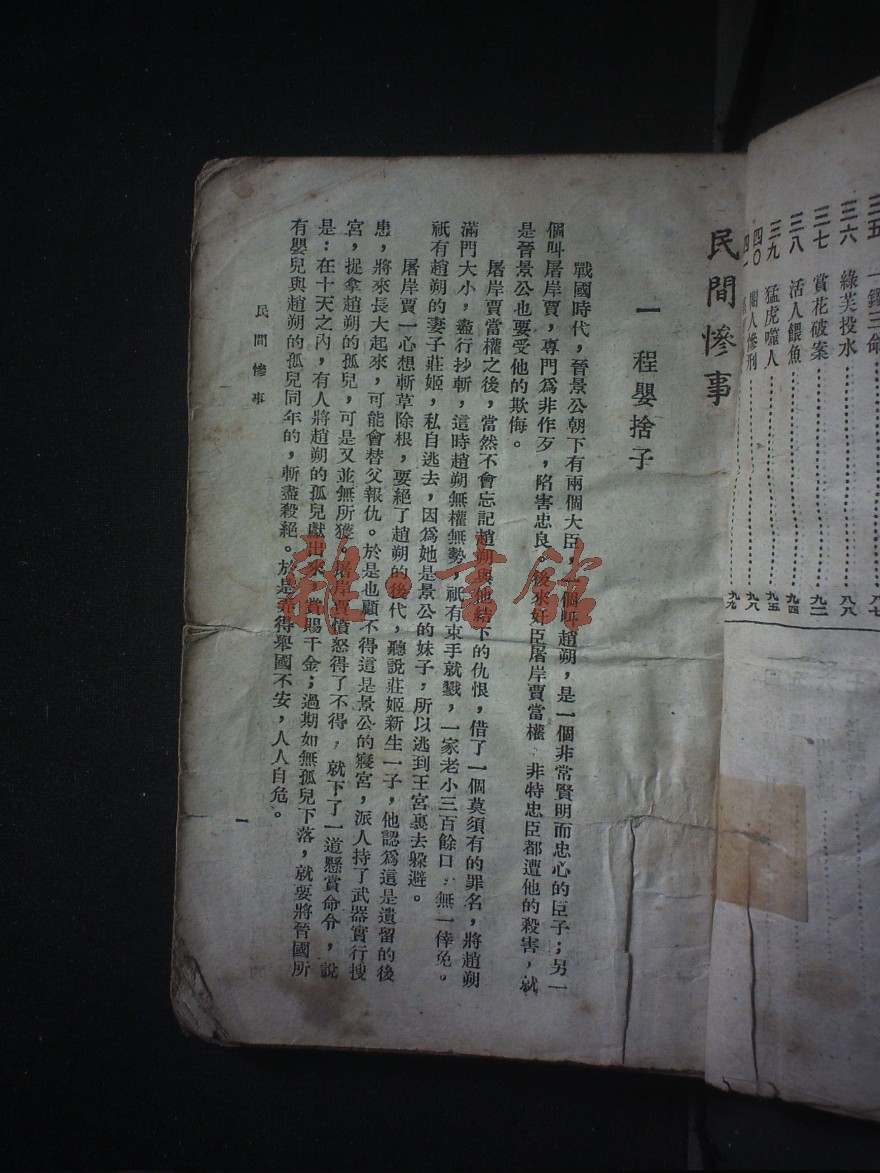 三五 一鐶三命 八七
三六 綠芙投水 八八
三七 賞花破案 九二
三八 活人餵魚 九四
三九 猛虎噬人 九五
四〇 閹人慘刑 九八
四一 九九
民間慘事
一 程嬰捨子
戰國時代,晉景公朝下有兩個大臣,一個叫趙朔,是一個非常賢明而忠心的臣子;另一
個叫屠岸賈,專門爲非作歹,陷害忠良。後來奸臣屠岸賈當權,非特忠臣都遭他的殺害,就
是晉景公也要受他的欺侮。
屠岸賈當權之後,當然不會忘記趙朔與他結下的仇恨,借了一個莫須有的罪名,將趙朔
滿門大小,盡行抄斬,這時趙朔無權無勢,祇有束手就戮,一家老小三百餘口,無一倖免。
祇有趙朔的妻子莊姬,私自逃去,因爲她是景公的妹子,所以逃到王宮裏去躲避。
屠岸賈一心想斬草除根,要絕了趙朔的後代,聽說莊姬新生一子,他認爲這是遺留的後
患,將來長大起來,可能會替父報仇。於是也顧不得這是景公的寢宮,派人持了武器實行搜
宮,捉拿趙朔的孤兒,可是又並無所獲。屠岸賈憤怒得了不得,就下了一道懸賞命令,說
是:在十天之內,有人將趙朔的孤兒獻出來,賞賜千金;過期如無孤兒下落,就要將晉國所
有嬰兒與趙朔的孤兒同年的,斬盡殺絕。於是弄得舉國不安,人人自危。
民間慘事
一
雜·書館